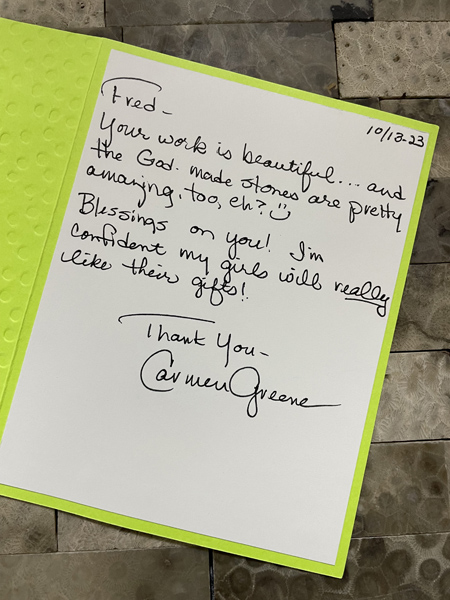 10/13-23
Fred-
Your work is beautiful... and
the God-made stones are pretty
amazing, too, eh? ☺
Blessings on you! I'm
confident my girls will really
like their gifts!
Thank You-
Carmen Greene